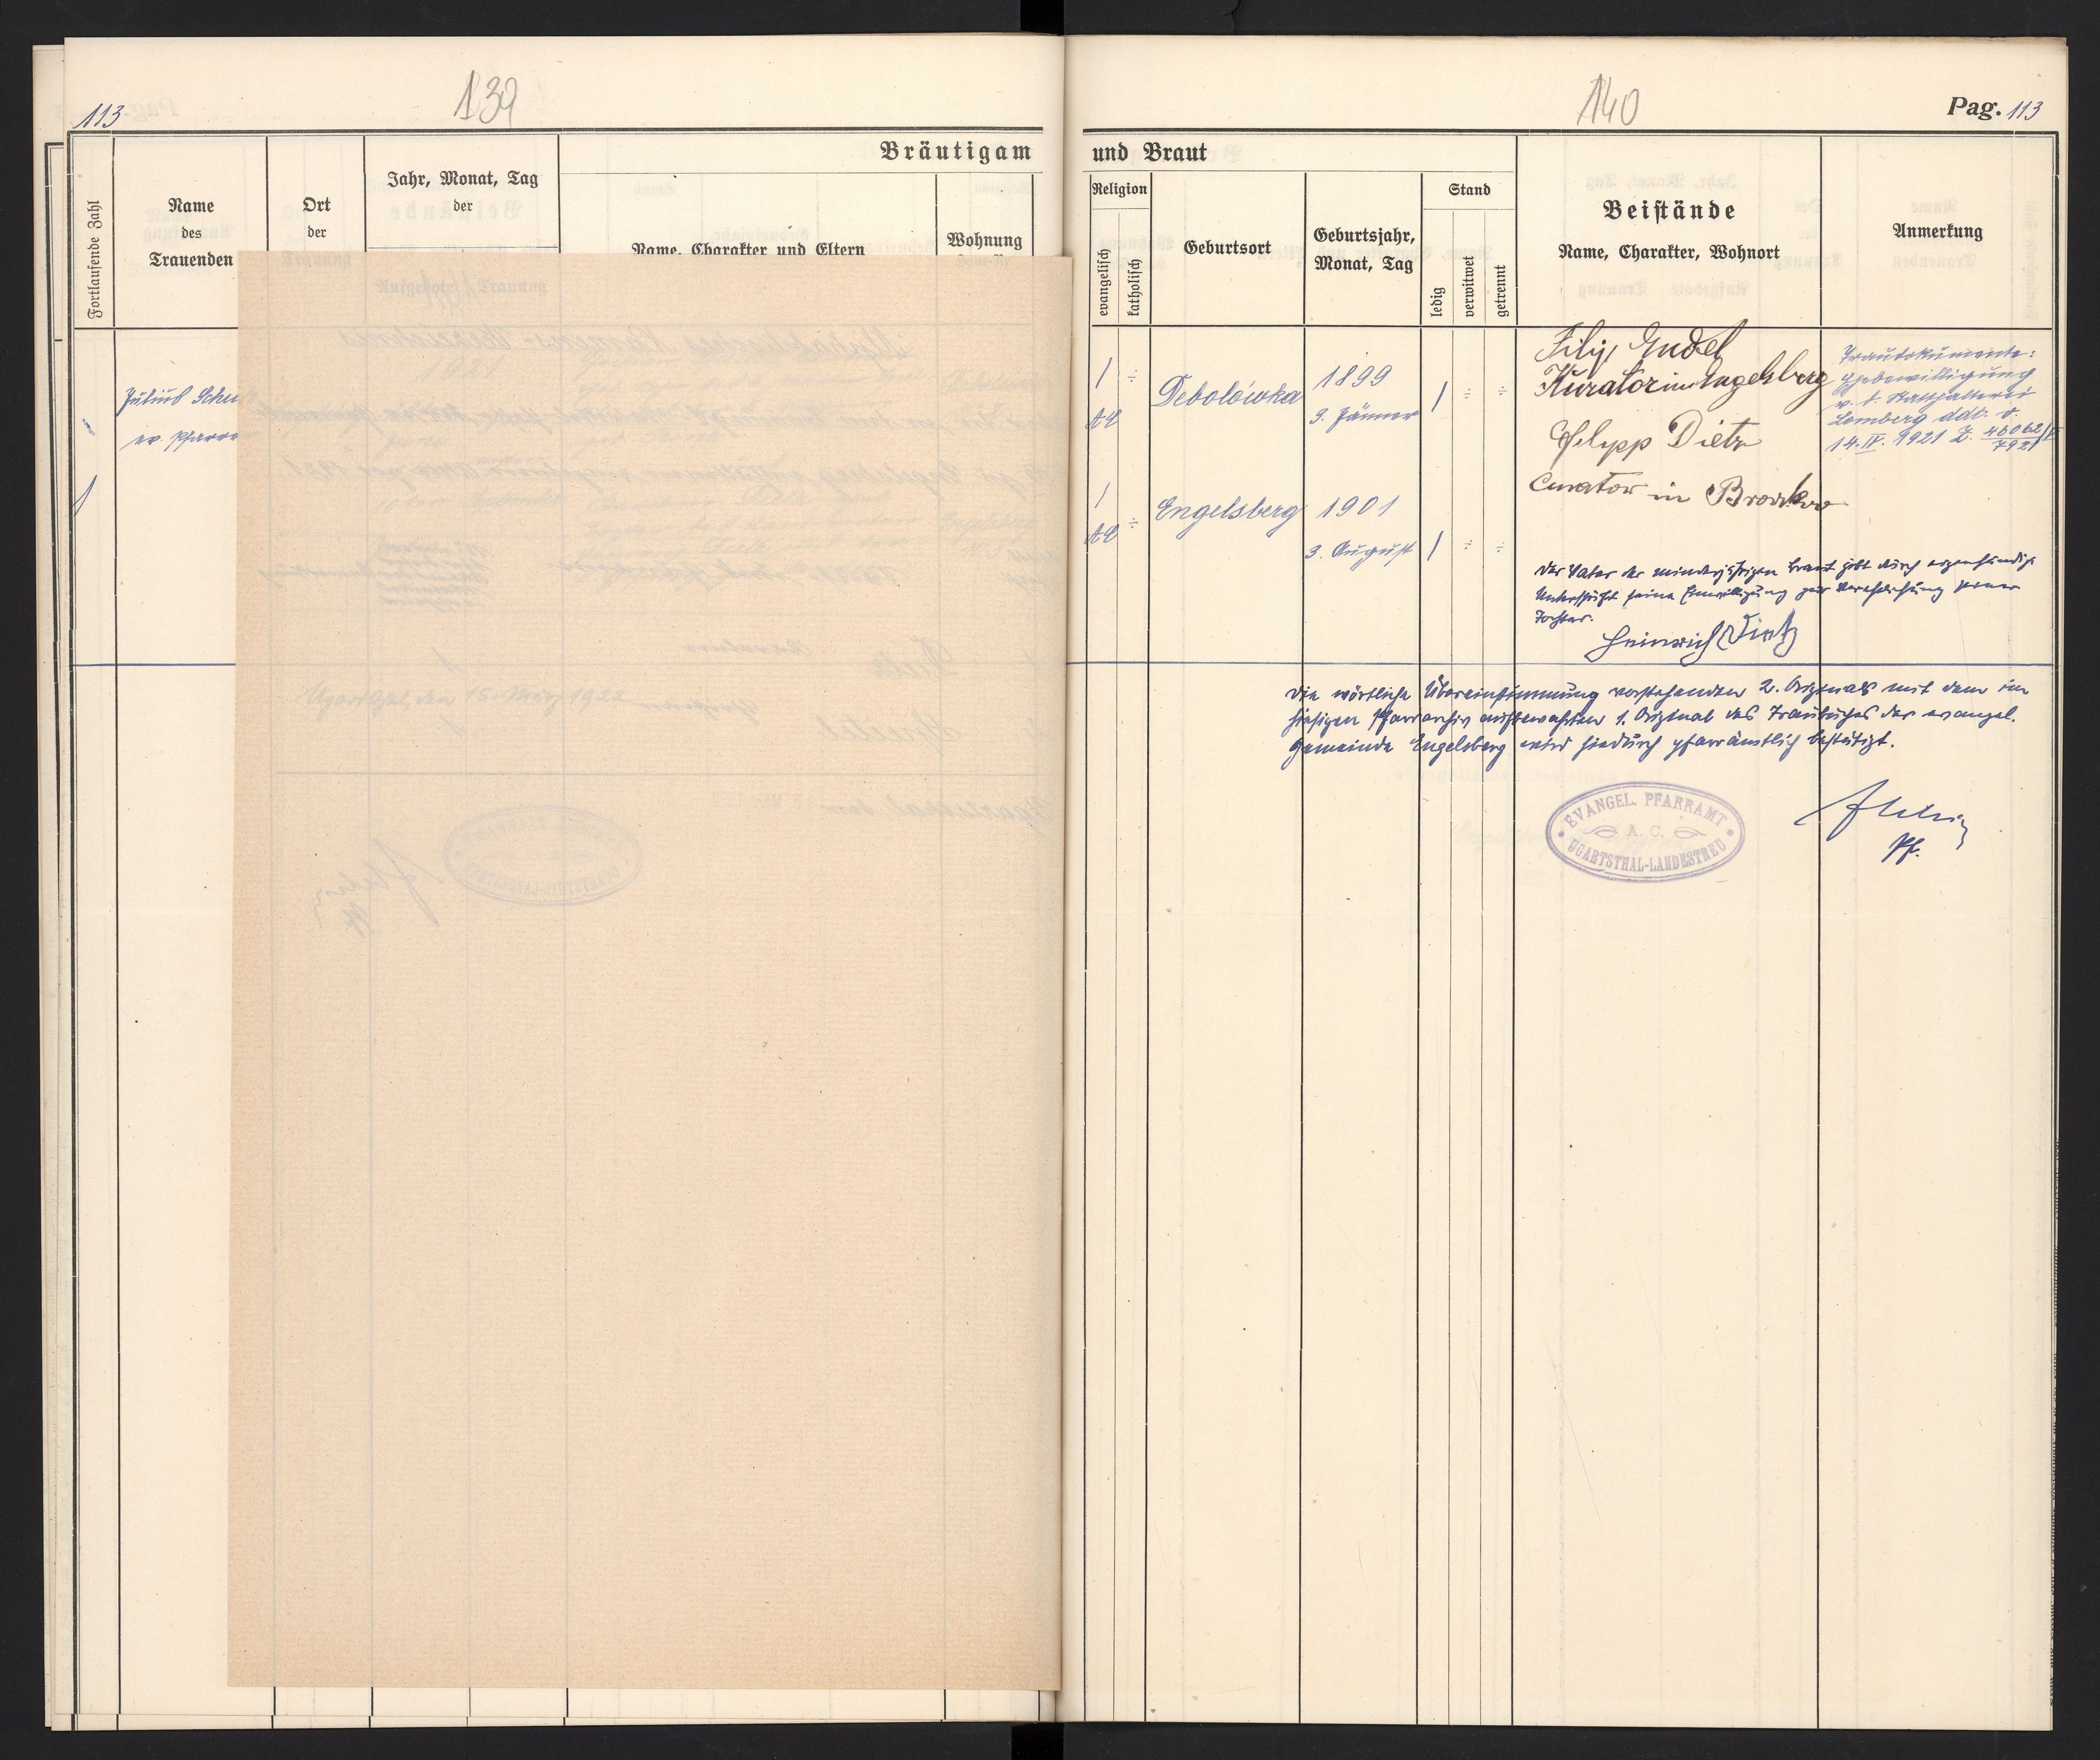 113
139
Bräutigam
Fortlaufende Zahl
Name
des
Trauenden
Ort
der
Jahr, Monat, Tag
der
Name, Charakter und Eltern
Wohnung
1
Julius
ev. Pfarrer
140
Pag. 113
und Braut
Religion
evangelisch
katholisch
Geburtsort
Geburtsjahr,
Monat, Tag
Stand
ledig
verwitwet
getrennt
Beistände
Name, Charakter, Wohnort
Anmerkung
1 ÷ Debolówka 1899
AC 9. Jänner 1 ÷ ÷
1 ÷ Engelsberg 1901
AC 3. August 1 ÷ ÷
Kurator in Engelsberg
Dietz
Curator in
Der Vater der minderjährigen Braut gibt durch eigenhändige
Unterschrift seine Einwilligung zur Verehelichung seiner
Tochter.
Heinrich Dietz
Traudokumente:
Ehebewilligung
v. d. Statthalterei
Lemberg ddt. v.
14. IV. 1921 Z.
Die wörtliche Übereinstimmung vorstehenden 2. Originals mit dem im
hiesigen Pfarrarchiv aufbewahrten 1. Original des Traubuches der evangel.
Gemeinde Engelsberg wird hiedurch pfarrämtlich bestätigt.
EVANGEL. PFARRAMT
A. C.
UGARTSTHAL-LANDESTREU
Pf.